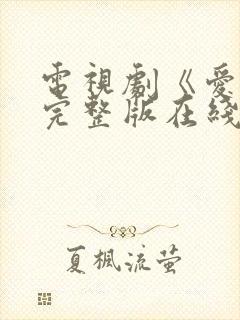 電視劇《愛
完整版在綫
夏楓流萤